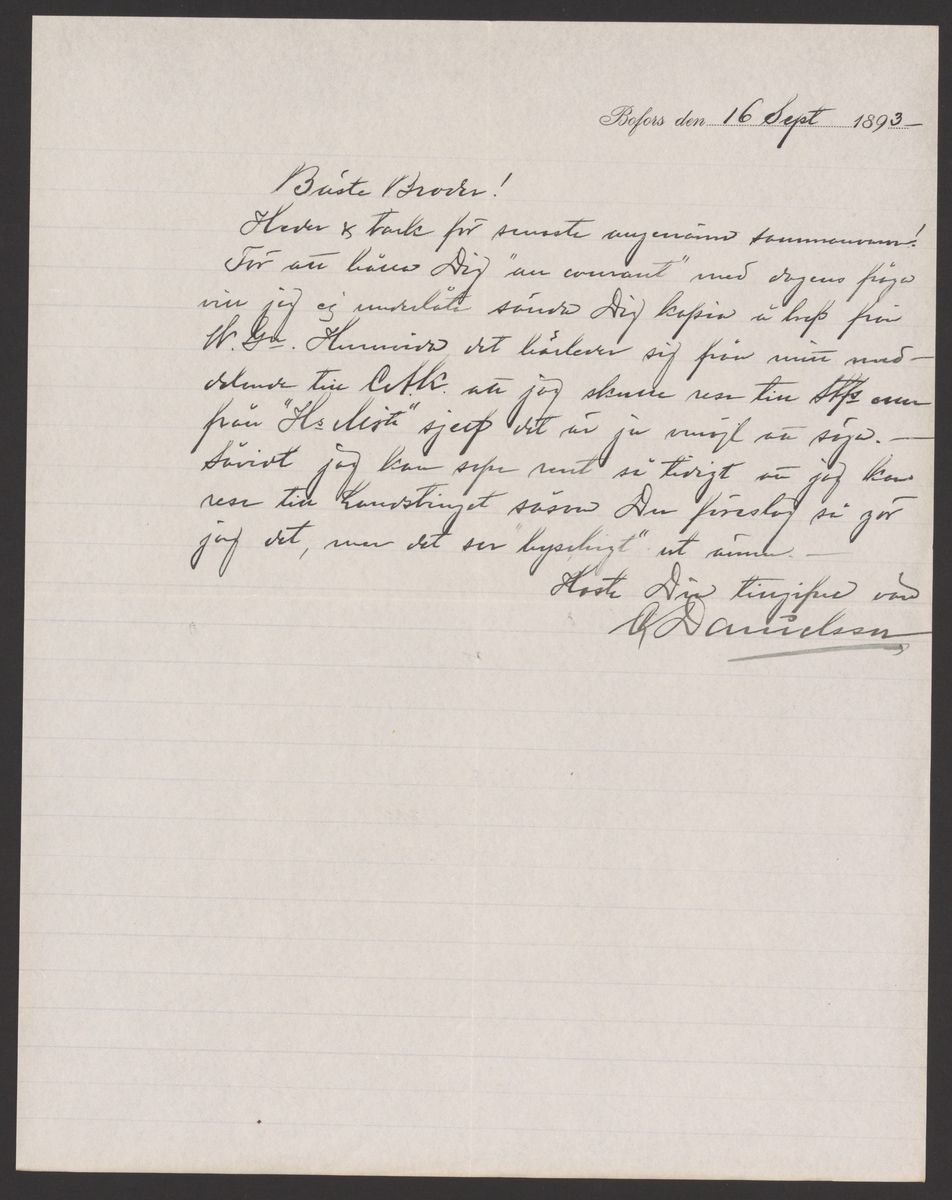 Bofors den 16 Sept 1893
Bäste Broder!
Heder & tack för senaste angenäma sammanvaro!
För att hålla Dig "au courant" med dagens fråga
vill jag ej underlåta sända Dig kopia å bref från
W. Gn. det härleder sig från mitt med-
delande till C.A.K. att jag skulle resa till
från "Hs sjelf det är ju omöjl att säga. —
Såvidt jag kan sluta så tidigt att jag kan
resa till Landstinget såsom Du föreslog så gör
jag det, men det ser ut ännu. —
Hast Din tillgifne vän
G Danielsson